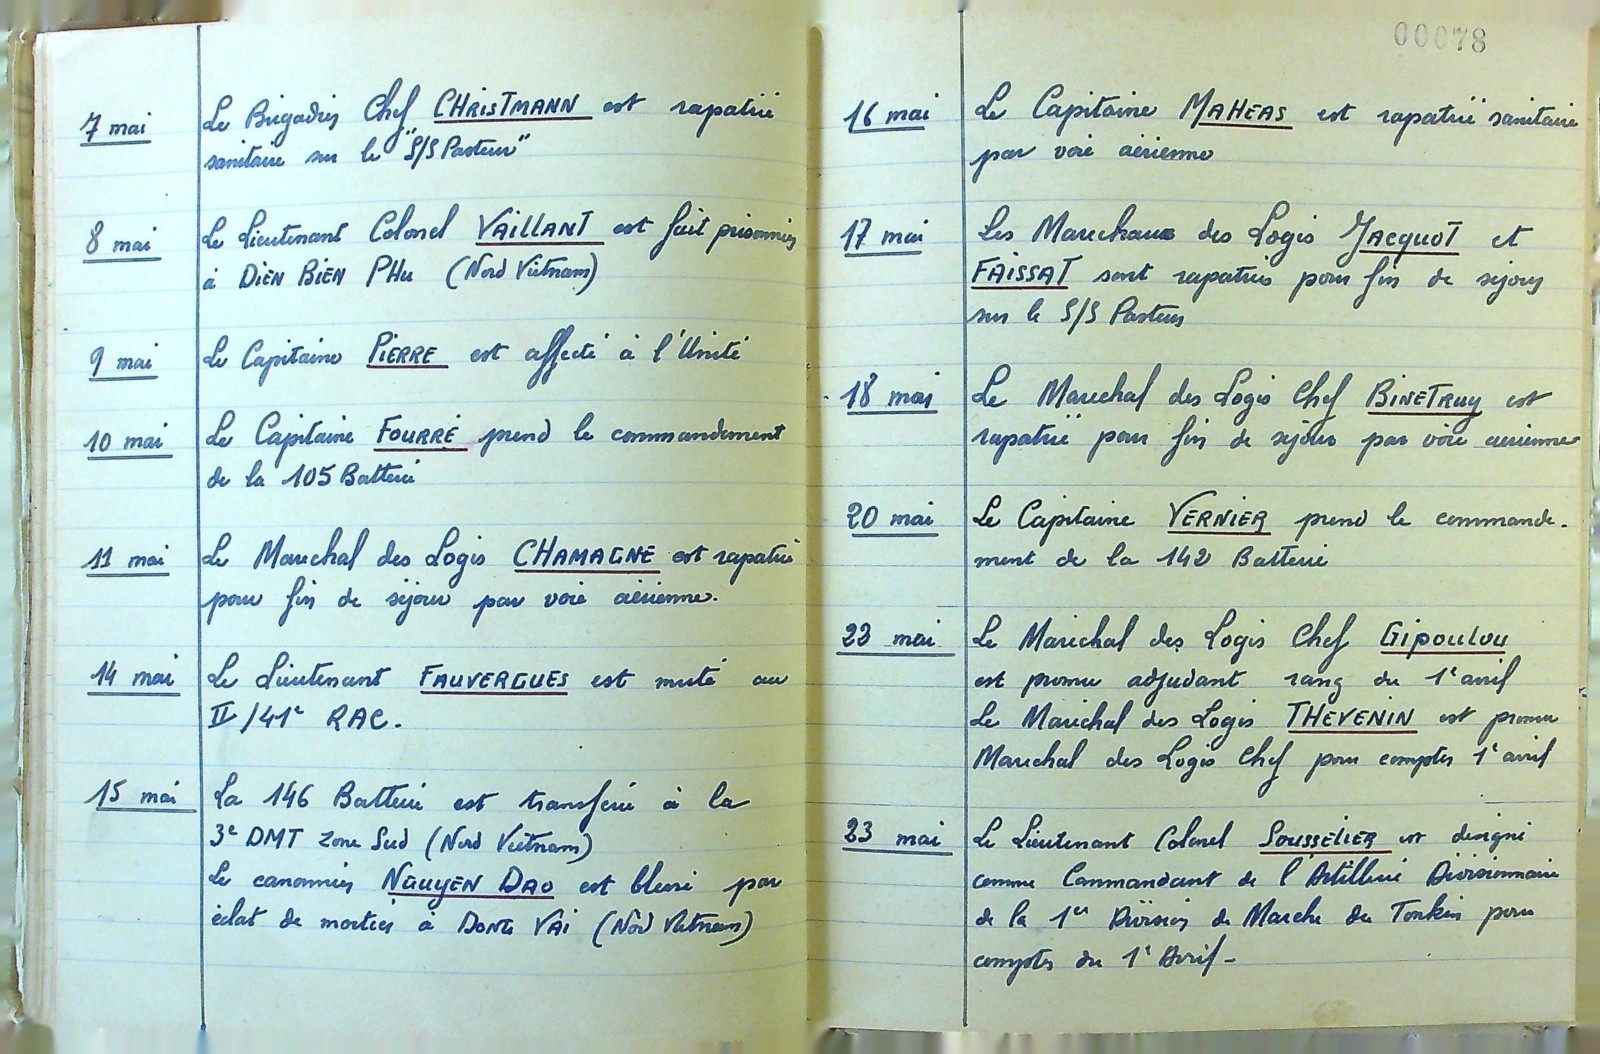 7 mai
Le Brigadier Chef CHRISTMANN est rapatrié
sanitaire sur le "S/S Pasteur"
8 mai
Le Lieutenant Colonel VAILLANT est fait prisonnier
à DIEN BIEN PHU (Nord Vietnam)
9 mai
Le Capitaine PIERRE est affecté à l'Unité
10 mai
Le Capitaine FOURRÉ prend le commandement
de la 105 Batterie
11 mai
Le Marechal des Logis CHAMAGNE est rapatrié
pour fin de séjour par voie aérienne.
14 mai
Le Lieutenant FAUVERGUES est muté au
II/41e RAC.
15 mai
La 146 Batterie est transférée à la
3e DMT zone Sud (Nord Vietnam)
Le canonnier NGUYEN DAO est blessé par
éclat de mortier à DONG VAI (Nord Vietnam)
00078
16 mai
Le Capitaine MAHEAS est rapatrié sanitaire
par voie aérienne
17 mai
Les Marechaux des Logis JACQUOT et
FAISSAT sont rapatriés pour fin de séjour
sur le S/S Pasteur
18 mai
Le Marechal des Logis Chef BINETRUY est
rapatrié pour fin de séjour par voie aerienne
20 mai
Le Capitaine VERNIER prend le commande-
ment de la 142 Batterie
23 mai
Le Maréchal des Logis Chef GIPOULOU
est promu adjudant rang du 1e avril
Le Maréchal des Logis THEVENIN est promu
Marechal des Logis Chef pour compter 1e avril
23 mai
Le Lieutenant Colonel SOUSSELIER est designé
comme Commandant de l'Artillerie Divisionnaire
de la 1er Division de Marche du Tonkin pour
compter du 1e Avril -